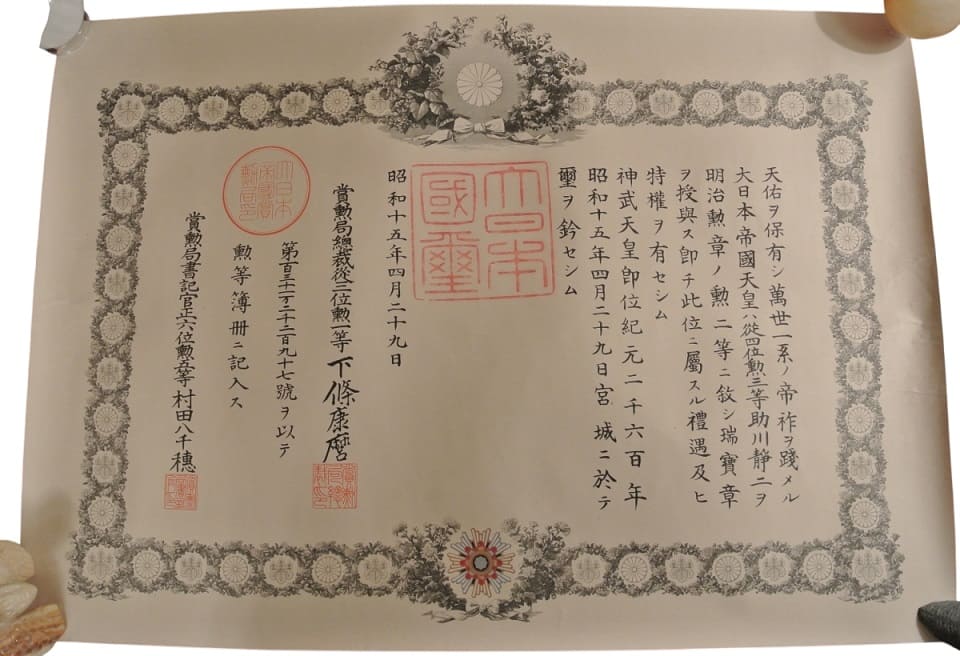 天佑ヲ保有シ萬世一系ノ帝祚ヲ踐メル
大日本帝國天皇ハ從四位勲三等助川靜二ヲ
明治勲章ノ勲二等ニ敘シ瑞寶章
ヲ授與ス卽チ此位ニ屬スル禮遇及ヒ
特權ヲ有セシム
神武天皇卽位紀元二千六百年
昭和十五年四月二十九日宮城ニ於テ
璽ヲ鈐セシム
大日本
國璽
昭和十五年四月二十九日
賞勲局總裁從三位勲一等下條康麿
第百三十一万二千二百九十七號ヲ以テ
勲等簿冊ニ記入ス
大日本
帝國賞
勲局印
賞勲局書記官正六位勲五等村田八千穗